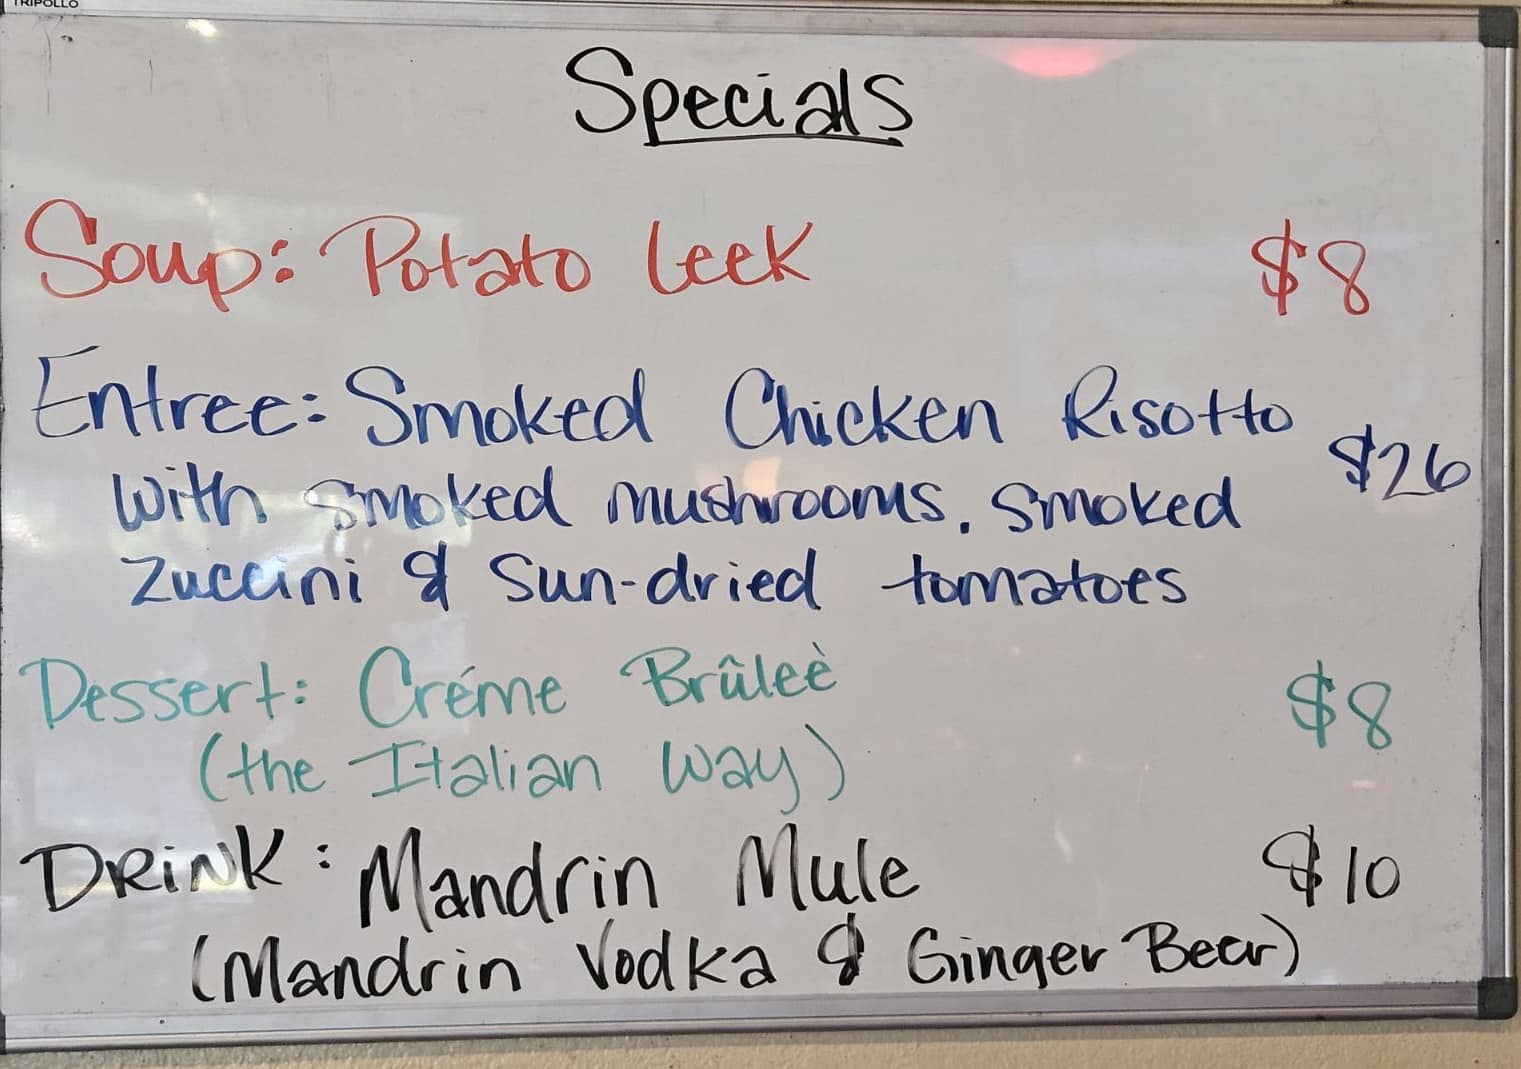 TRIPOLLO
Specials
Soup: Potato Leek $8
Entree: Smoked Chicken Risotto $26
with smoked mushrooms, smoked
Zuccini & Sun-dried tomatoes
Dessert: Créme Brûleè $8
(the Italian way)
DRiNK: Mandrin Mule $10
(Mandrin Vodka & Ginger Bear)